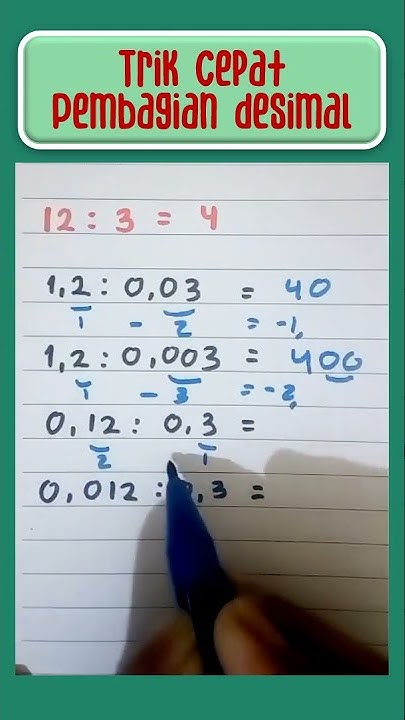 Trik cepat
pembagian desimal
12 : 3 = 4
1,2 : 0,03 = 40
1 - 2 = -1
1,2 : 0,003 = 400
1 - 3 = -2
0,12 : 0,3 =
2 1
0,012 : ,3 =